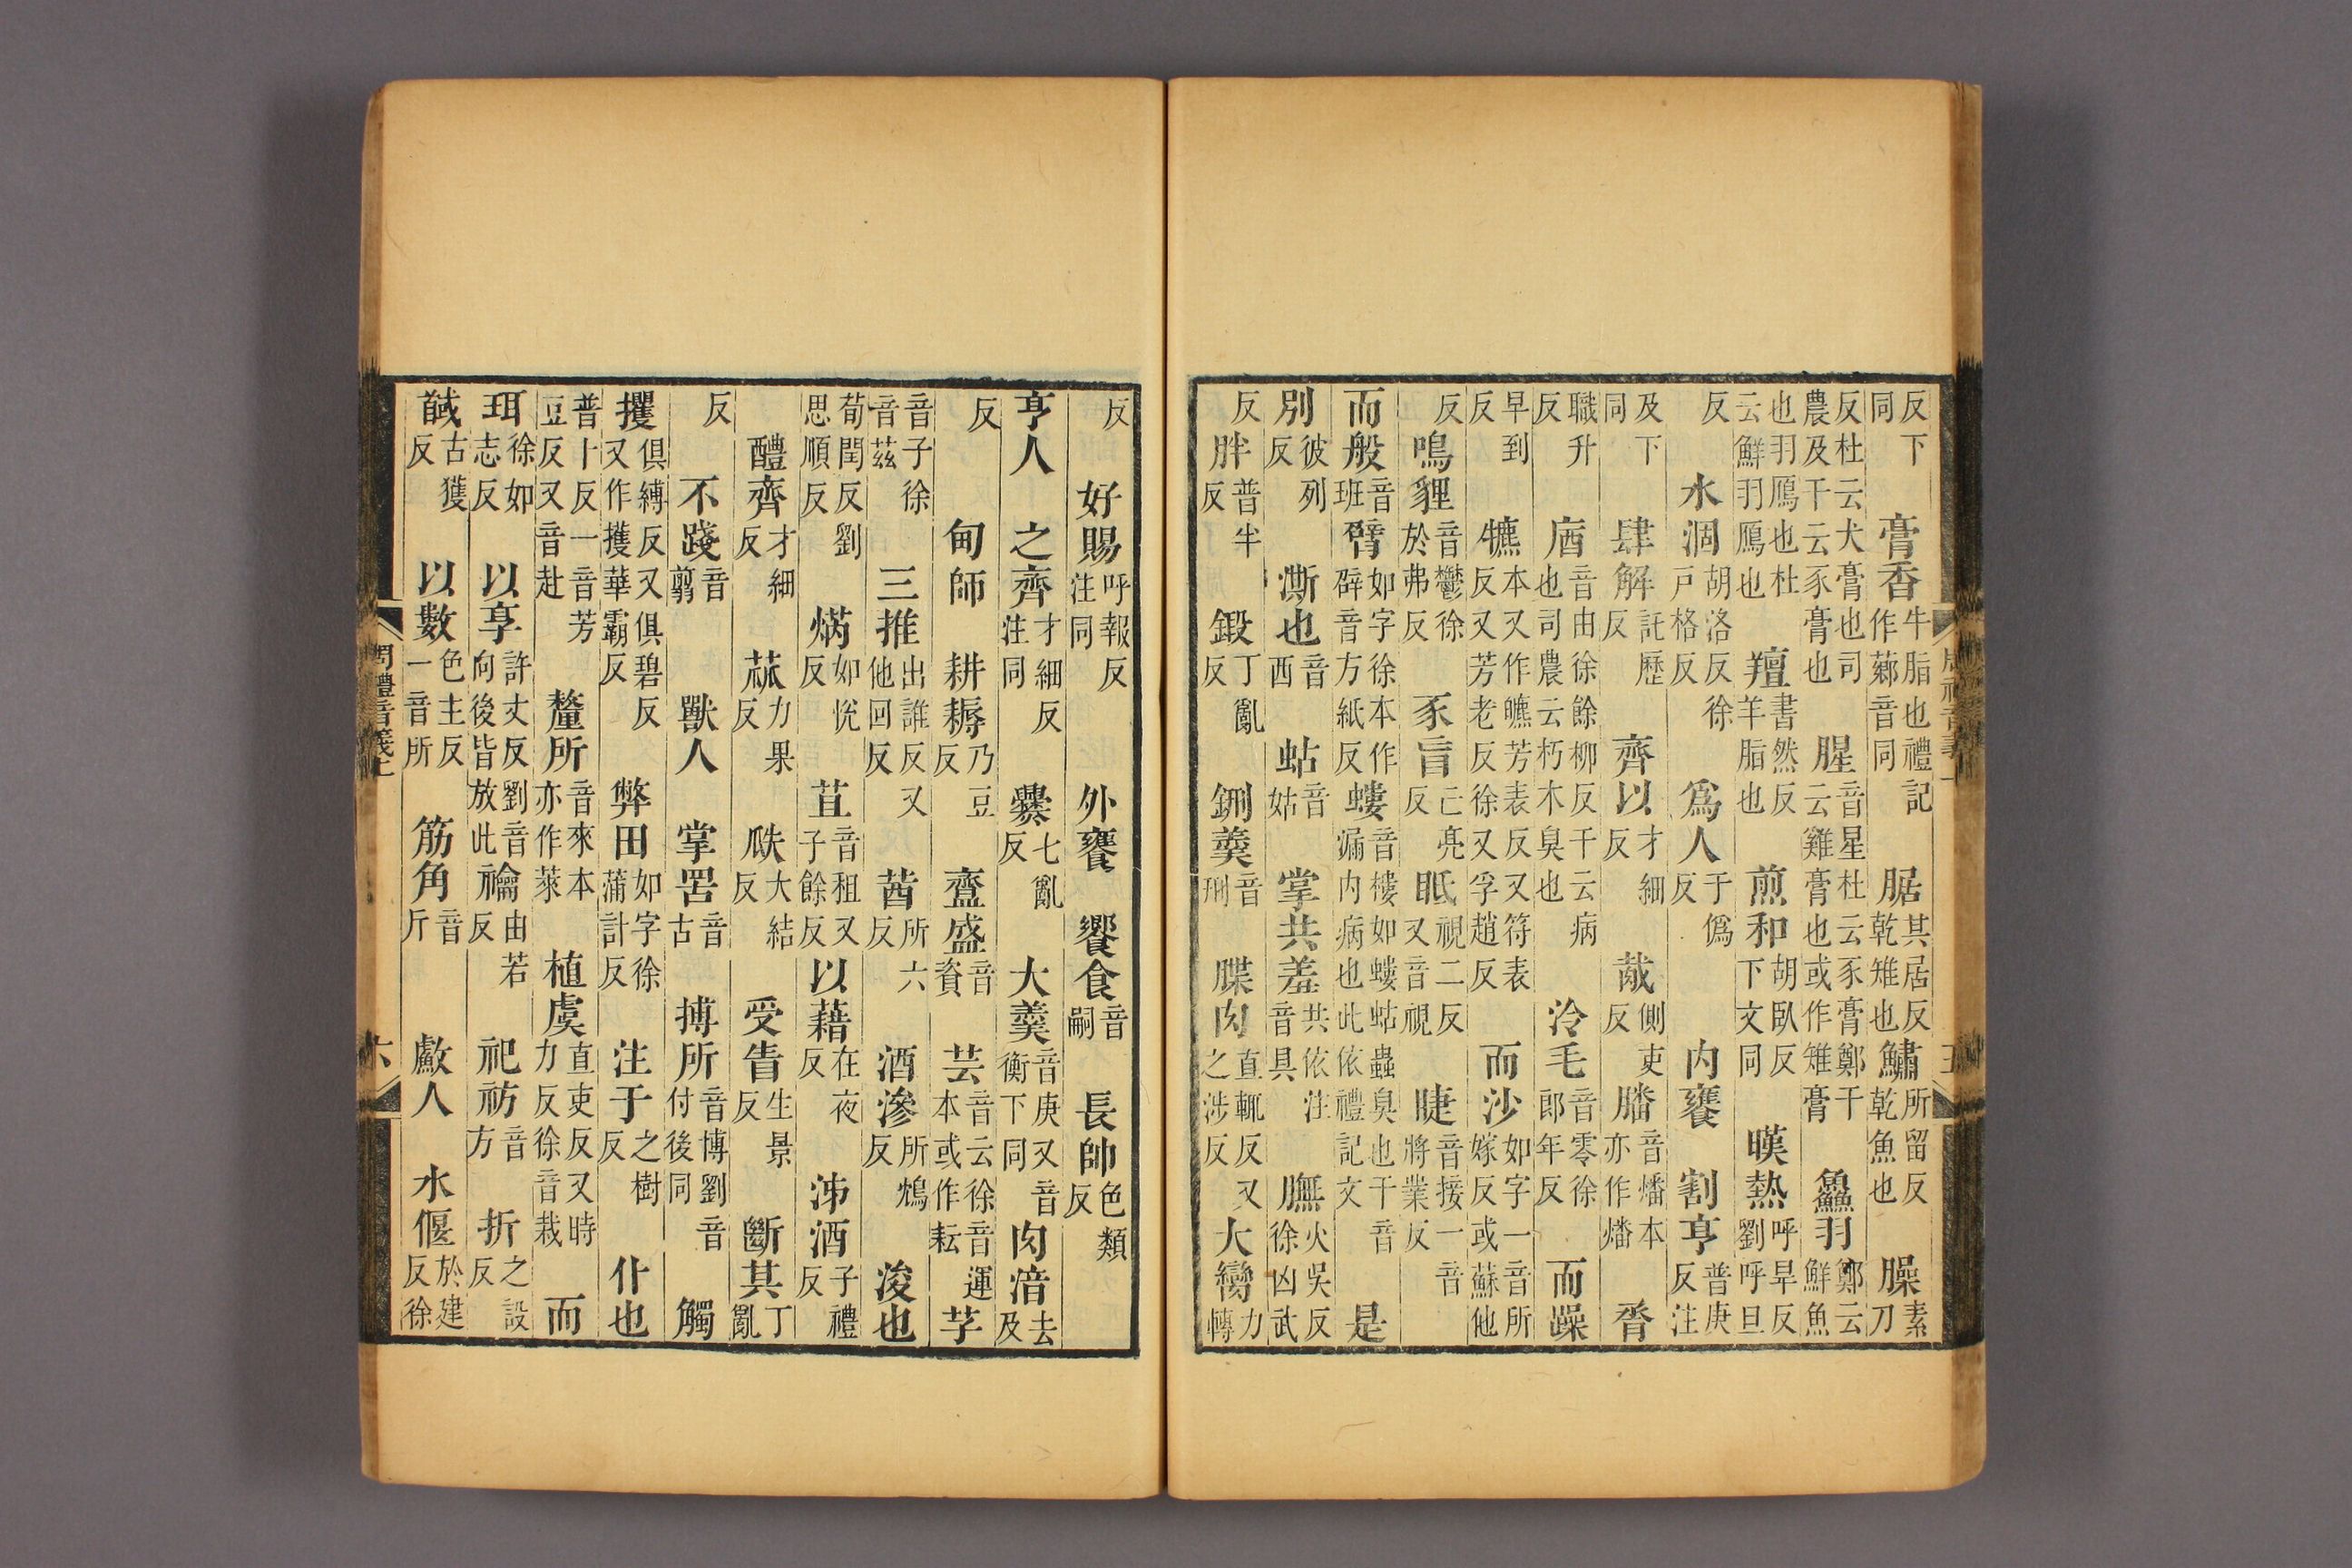 反下同膏香牛脂也禮記作薌音同腒其居反乾雉也鱐所留反乾魚也臊素刀
反杜云犬膏也司農及干云豕膏也腥音星杜云豕膏鄭干云雞膏也或作雉膏鱻羽鄭云鮮魚
也羽鴈也杜云鮮羽鴈也羶書然反羊脂也煎和胡臥反下文同暵熱呼旱反劉呼旦
反水涸胡洛反徐戶格反爲人于僞反内饔割亨普庚反注
及下同肆解託歷反齊以才細反胾側吏反膰音燔本亦作燔脀
職升反庮音由徐餘柳反干云病也司農云朽木臭也泠毛音零徐郎年反而躁
早到反犥本又作皫芳表反又符表反又芳老反徐又孚趙反而沙如字一音所嫁反或蘇他
反鳴貍音鬱徐於弗反豕盲亡亮反眂視二反又音視睫音接一音將業反
而般音班臂如字徐本作辟音方紙反螻音樓如螻蛄蟲臭也干音漏内病也此依禮記文是
別彼列反澌也音西蛄音姑掌共羞共依注音具膴火吳反徐凶武
反胖普半反鍛丁亂反鉶羹音刑牒肉直輒反又之涉反大臠力轉
反好賜呼報反注同外饔饗食音嗣長帥色類反
亨人之齊才細反注同爨七亂反大羹音庚又音衡下同肉湆去及
反甸師耕耨乃豆反齍盛音資芸音云徐音運本或作耘芓
音子徐音茲三推出誰反又他回反莤所六反酒滲所鴆反浚也
荀閏反劉思順反焫如悅反苴音租又子餘反以藉在夜反泲酒子禮反
醴齊才細反蓏力果反瓞大結反受眚生景反斷其丁亂
反不踐音翦獸人掌罟音古搏所音博劉音付後同觸
攫俱縛反又俱碧反又作擭華霸反弊田如字徐蒲計反注于之樹反仆也
普卜反一音芳豆反又音赴釐所音來本亦作萊植虞直吏反又時力反徐音栽而
珥徐如志反以亨許丈反劉音向後皆放此禴由若反祀祊音方折之設反
馘古獲反以數色主反一音所筋角音斤䱷人水偃於建反徐
周禮音義上 六